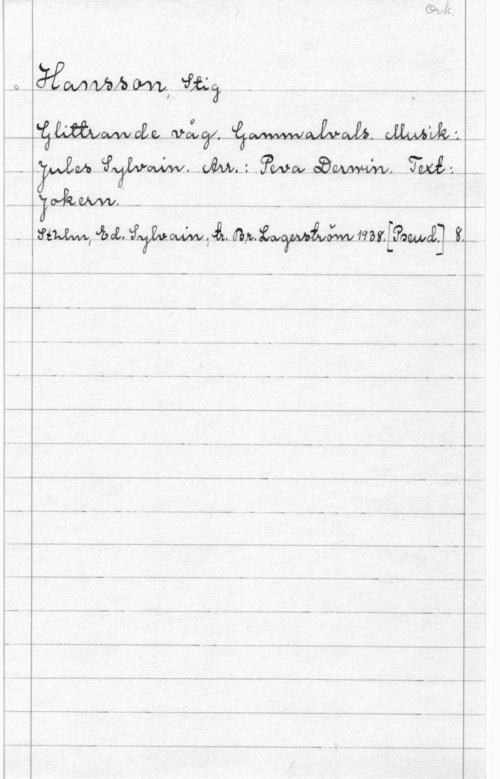 Ork.
Hansson, Stig
Glittrande våg. Gammalvals. Musik:
Jules Sylvain. Arr.: Peva Derwin. Text:
Jokern.
Sthlm, Ed. Sylvain, tr. Br. Lagerström 1938. [Pseud.] 8.